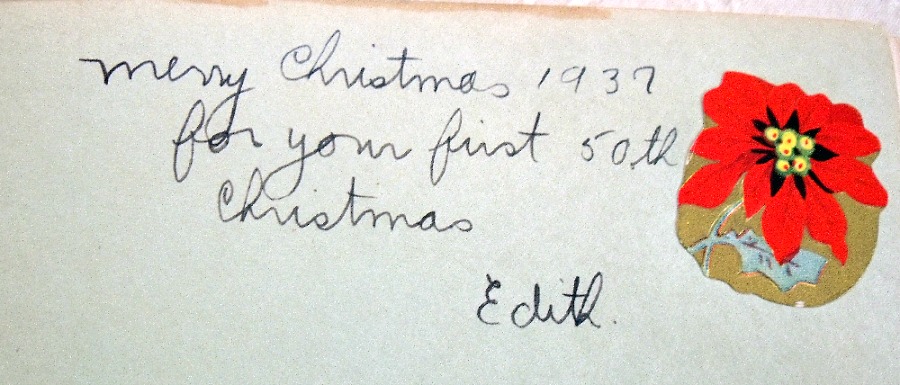 merry Christmas 1937
for your first 50th
Christmas
Edith.